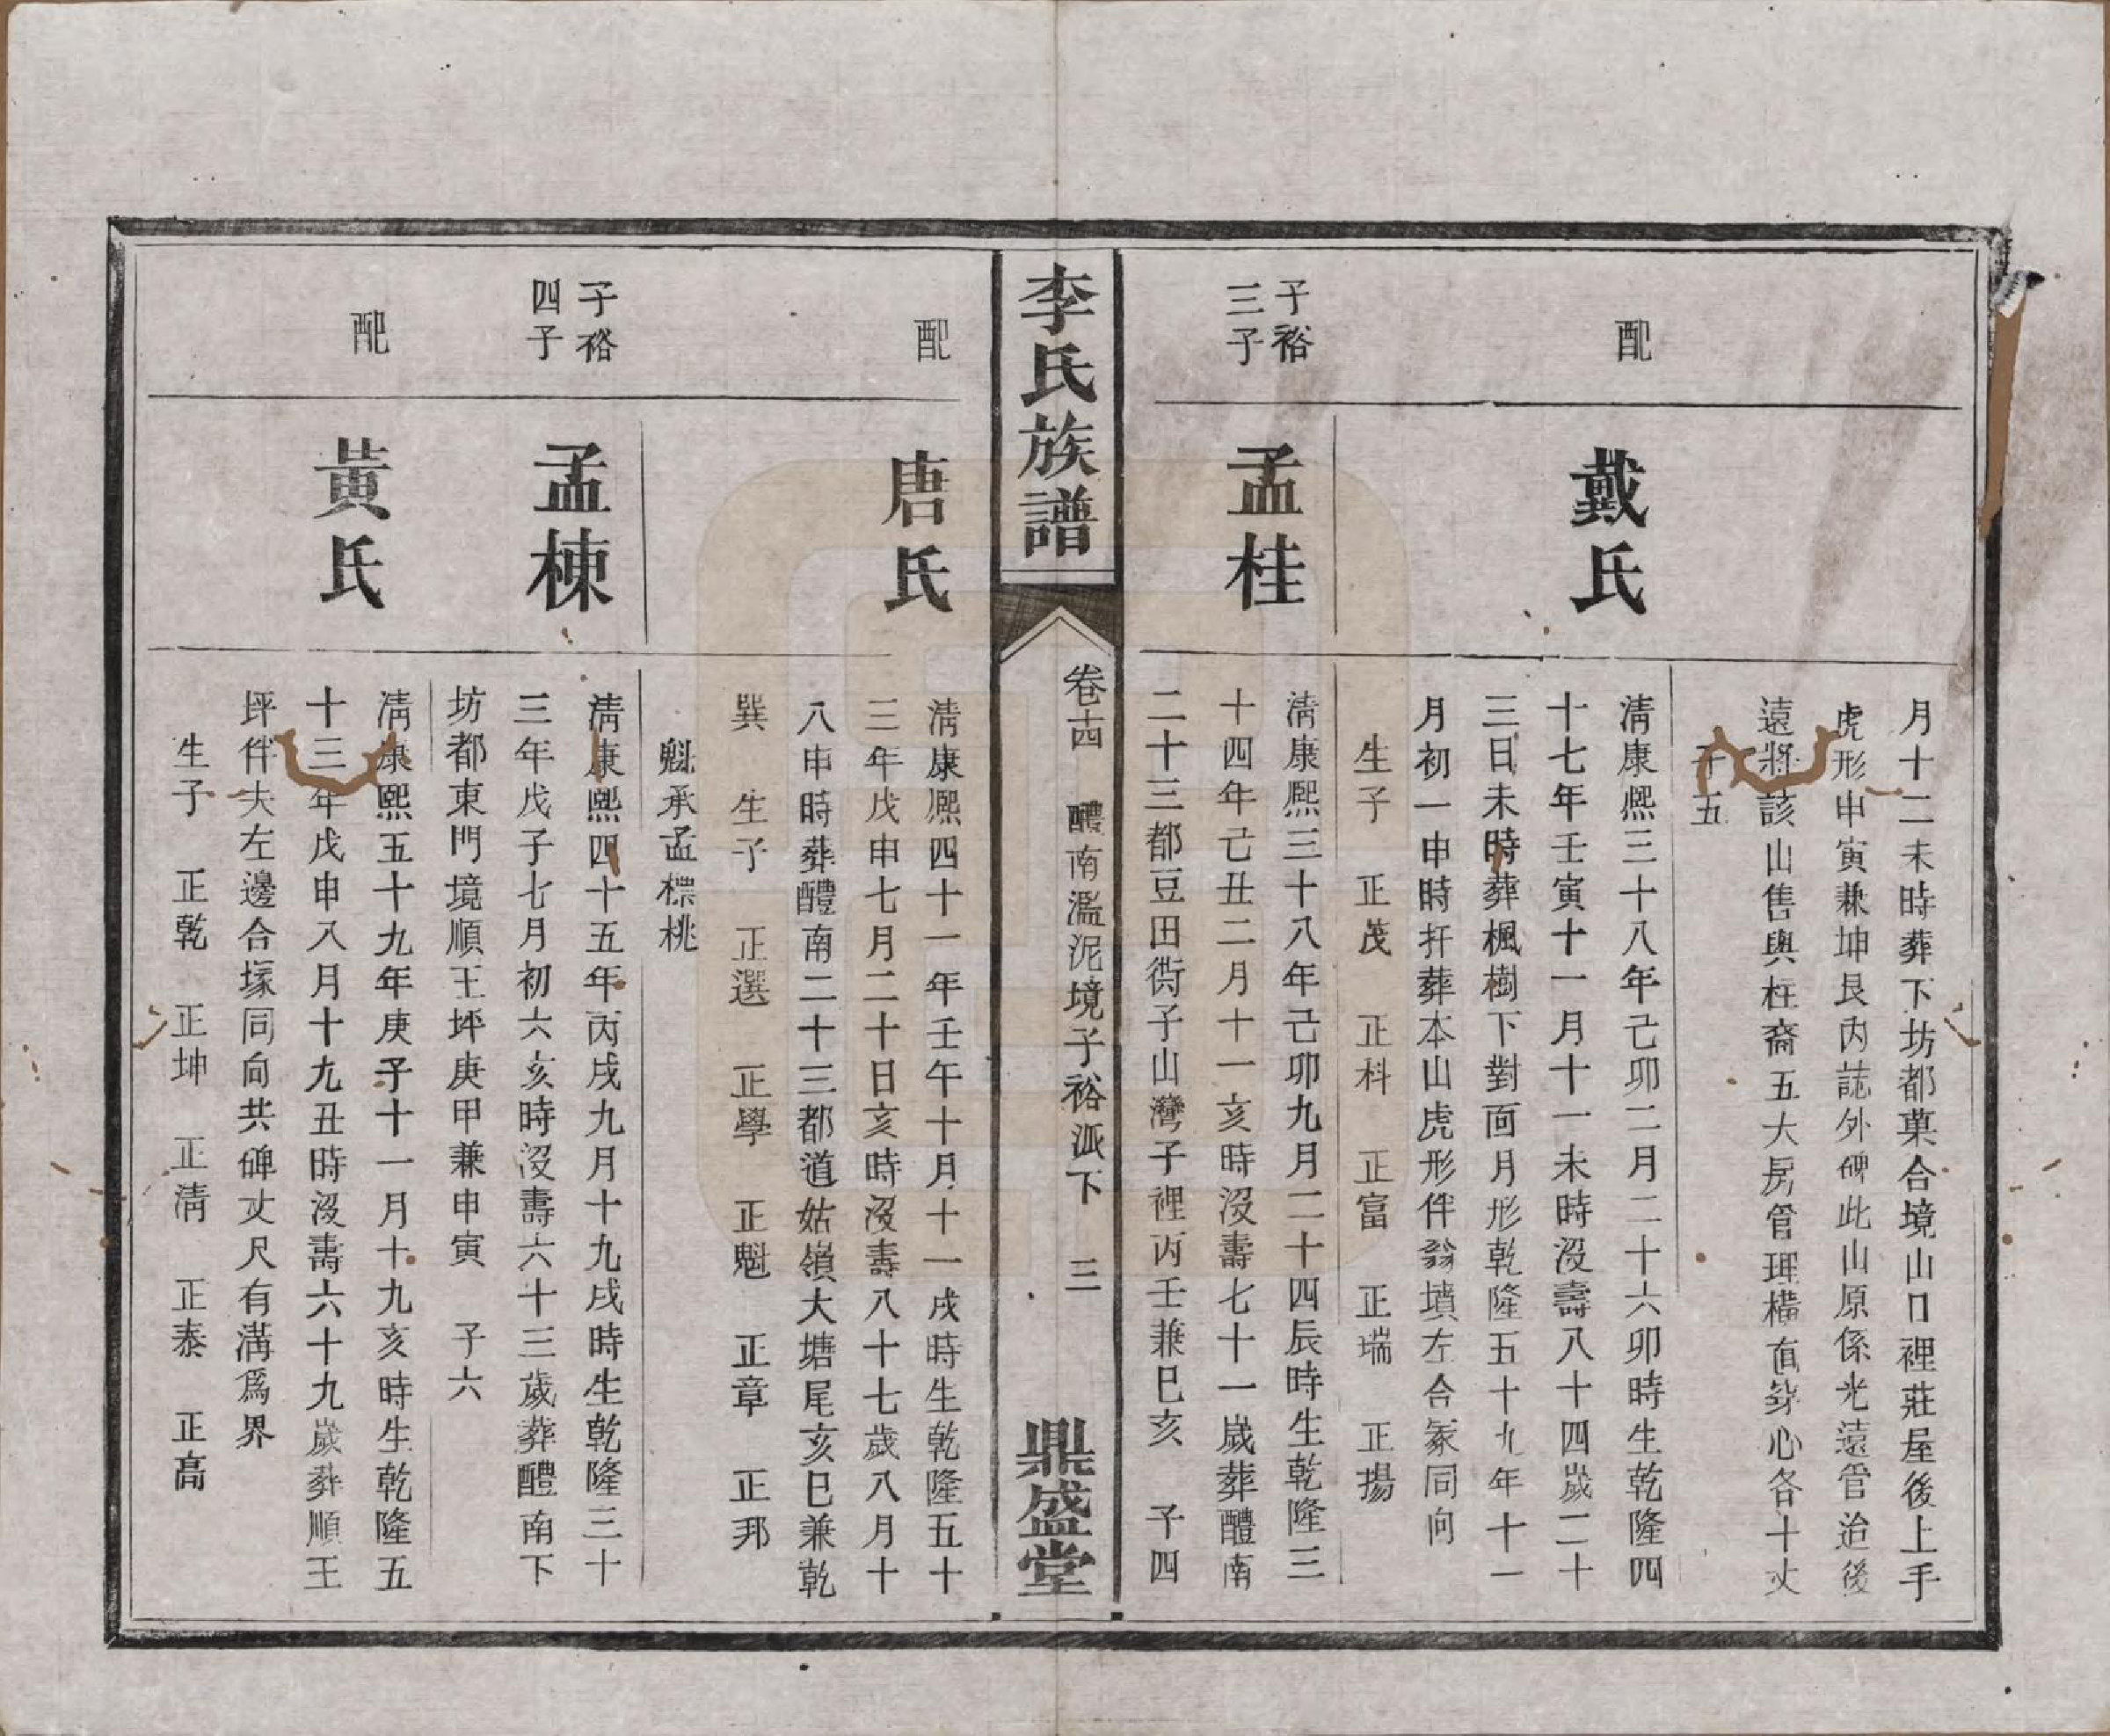 月十二未時葬下坊都菓合境山口裡莊屋後上手
虎形申寅兼坤艮內誌外碑此山原係光遠管治後
遠將該山售與柱裔五大房管理橫直穿心各十丈
子五
配
戴氏
清康熙三十八年己卯二月二十六卯時生乾隆四
十七年壬寅十一月十一未時沒壽八十四歲二十
三日未時葬楓樹下對面月形乾隆五十九年十一
月初一申時扦葬本山虎形伴翁墳左合冢同向
生子 正茂 正科 正富 正瑞 正揚
子裕
三子
孟桂
清康熙三十八年己卯九月二十四辰時生乾隆三
十四年己丑二月十一亥時沒壽七十一歲葬醴南
二十三都豆田衖子山灣子裡丙壬兼巳亥 子四
李氏族譜
卷十四 醴南濫泥境子裕派下 三
鼎盛堂
配
唐氏
清康熙四十一年壬午十月十一戌時生乾隆五十
三年戊申七月二十日亥時沒壽八十七歲八月十
八申時葬醴南二十三都道姑嶺大塘尾亥巳兼乾
巽 生子 正選 正學 正魁 正章 正邦
魁承孟標桃
子裕
四子
孟棟
清康熙四十五年丙戌九月十九戌時生乾隆三十
三年戊子七月初六亥時沒壽六十三歲葬醴南下
坊都東門境順王坪庚甲兼申寅 子六
配
黃氏
清康熙五十九年庚子十一月十九亥時生乾隆五
十三年戊申八月十九丑時沒壽六十九歲葬順王
坪伴夫左邊合塚同向共碑丈尺有溝爲界
生子 正乾 正坤 正清 正泰 正高